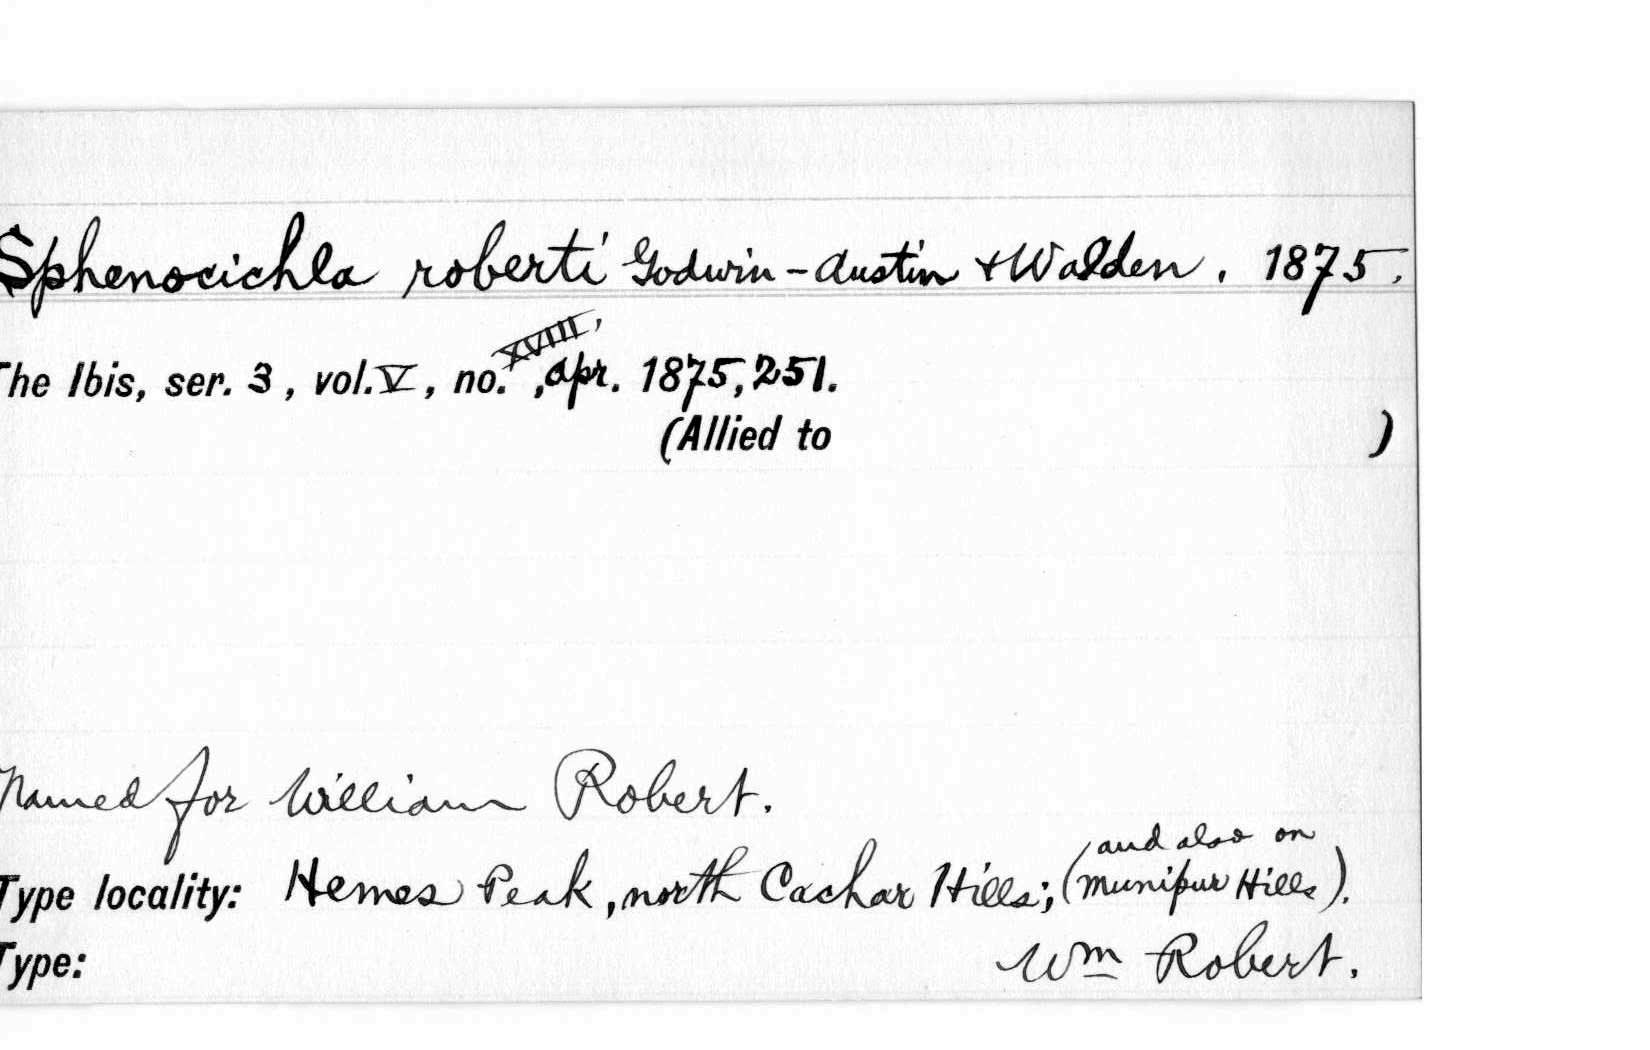 Sphenocichla roberti Godwin-Austin + Walden. 1875.
The Ibis, ser. 3, vol. V, no. XVIII, Apr. 1875, 251.
(Allied to )
Named for William Robert.
Type locality: Hemes Peak, north Cachar Hills; (and also on Munipur Hills).
Type: Wm Robert.